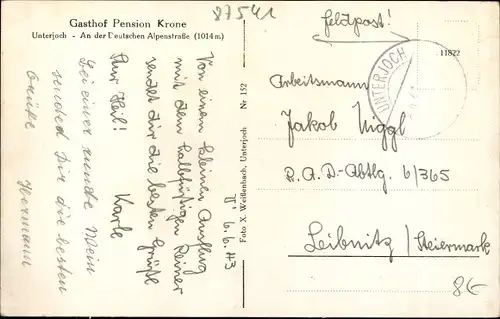 Gasthof Pension Krone
Unterjoch - An der Deutschen Alpenstraße (1014 m)
87541
Von einem kleinen Ausflug
mit dem halbfüßigen Reiner
sendet dir die besten Grüße
Kur Heil!
Karle
Bei einer runde Wein
sendet Dir die besten
Grüße
Hermann
U. 6.6.43
Foto X. Weißenbach, Unterjoch Nr 152
Feldpost!
UNTERJOCH
11822
Arbeitsmann
Jakob Niggl
R.A.D-Abtlg. 6/365
Leibnitz / Steiermark
8G